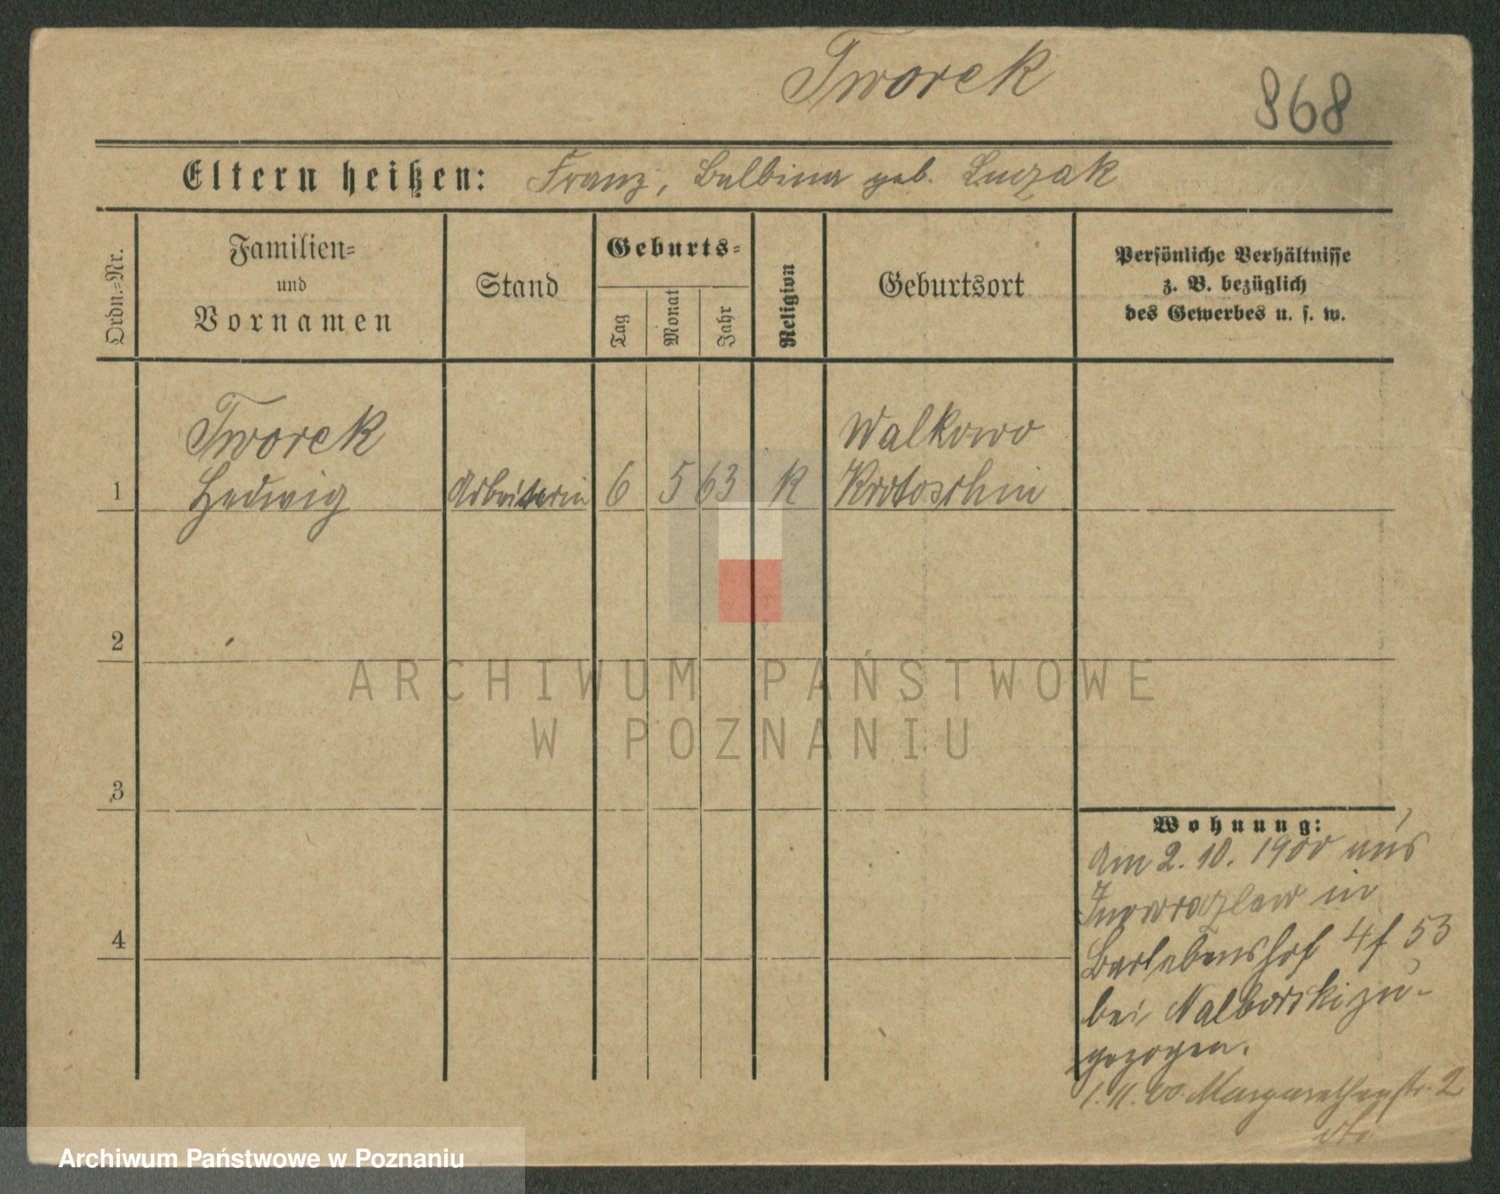 Tworek
868
Eltern heißen: Franz, Balbina geb. Luczak
Ordn.-Nr.
Familien-
und
Vornamen
Stand
Geburts-
Tag
Monat
Jahr
Religion
Geburtsort
Persönliche Verhältnisse
z. B. bezüglich
des Gewerbes u. s. w.
Tworek
Walkowo
1 Hedwig Arbeiterin 6 5 63 K Krotoschin
2
3
4
Wohnung:
Am 2. 10. 1900 aus
Inowrazlaw in
Berlebenshof 4f 53
bei Nalborski zu-
gezogen.
1. 11. 00. Margarethenstr. 2
ARCHIWUM PAŃSTWOWE
W POZNANIU
Archiwum Państwowe w Poznaniu